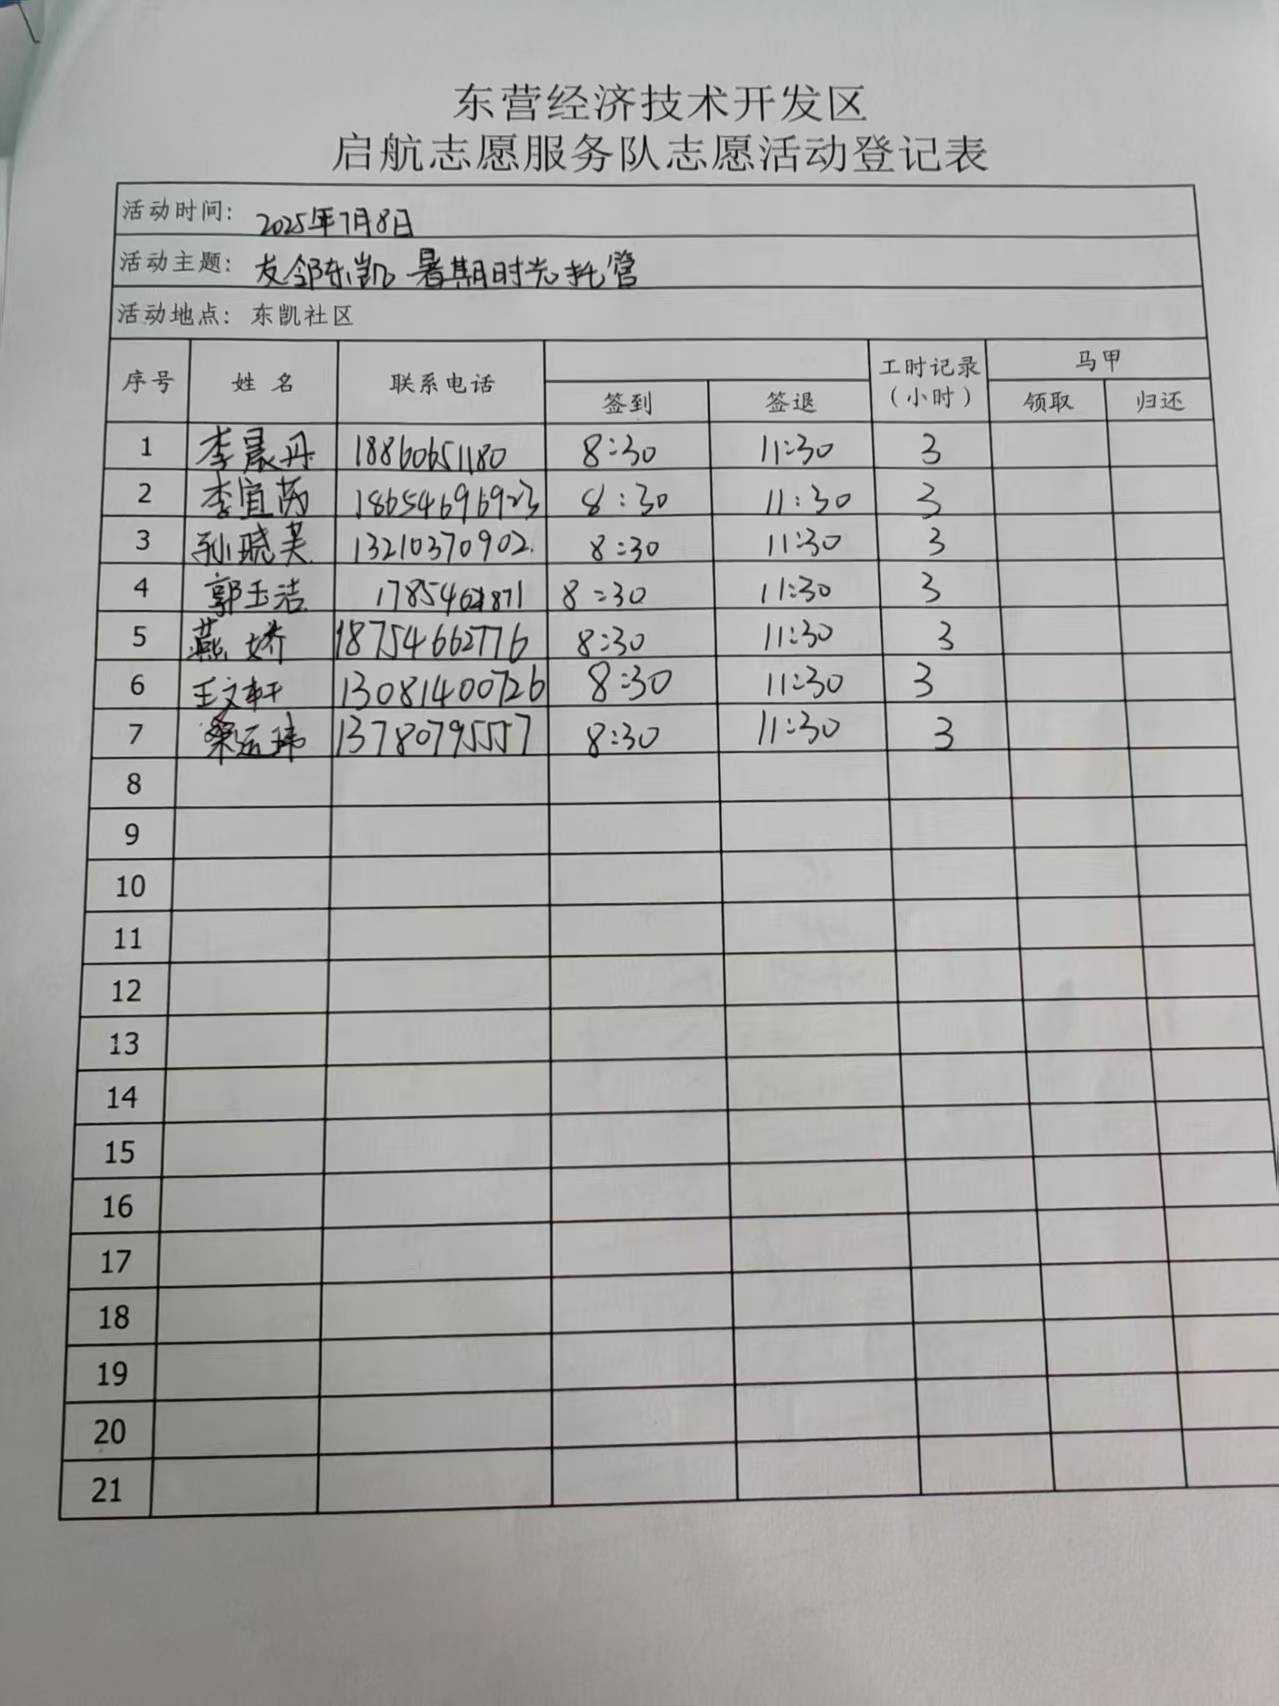 东营经济技术开发区
启航志愿服务队志愿活动登记表
活动时间: 2025年7月8日
活动主题: 友邻东凯 暑期时光托管
活动地点: 东凯社区
序号 姓名 联系电话 工时记录 马甲
签到 签退 (小时) 领取 归还
1 李晨丹 18860651180 8:30 11:30 3
2 李宜芮 18654696923 8:30 11:30 3
3 孙晓芙 13210370902. 8:30 11:30 3
4 郭玉洁 8:30 11:30 3
5 燕娇 18754662776 8:30 11:30 3
6 王文轩 13081400726 8:30 11:30 3
7 桑运玮 13780795557 8:30 11:30 3
8
9
10
11
12
13
14
15
16
17
18
19
20
21